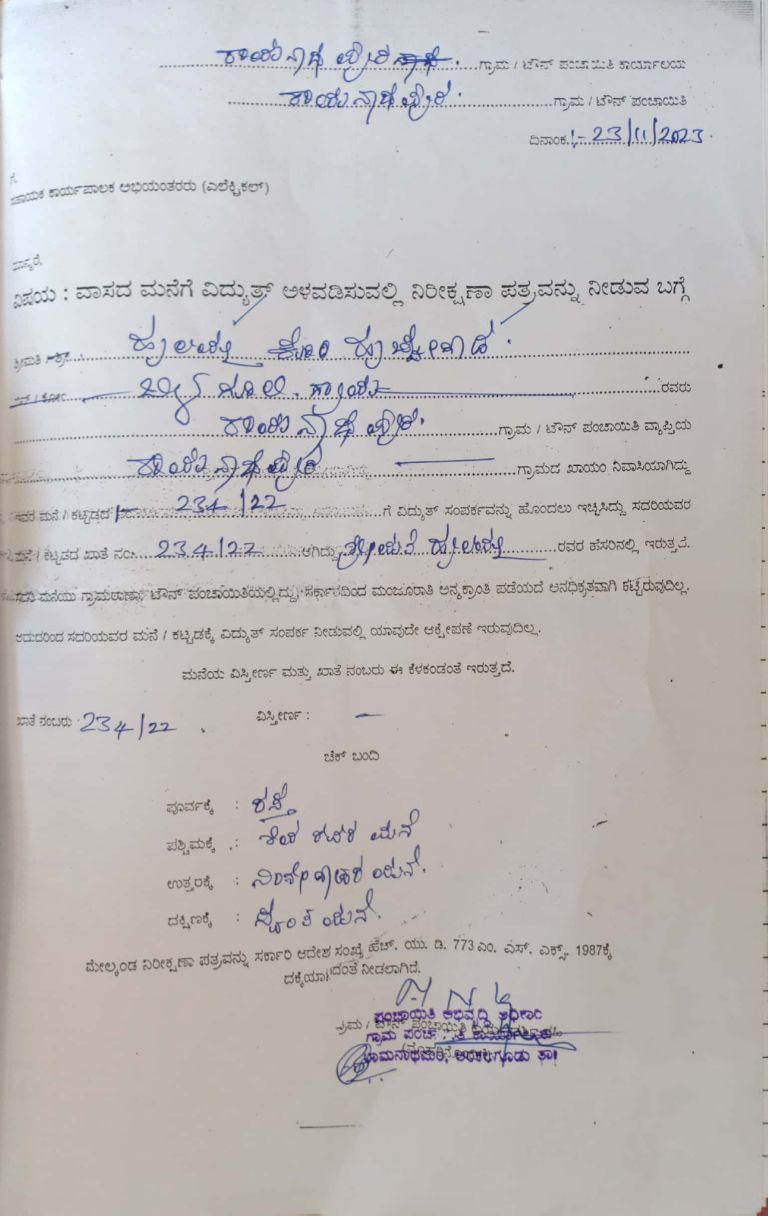 ರಾಮನಾಥಪುರ ಗ್ರಾಮ / ಟೌನ್ ಪಂಚಾಯಿತಿ ಕಾರ್ಯಾಲಯ
ರಾಮನಾಥಪುರ. ಗ್ರಾಮ / ಟೌನ್ ಪಂಚಾಯಿತಿ
ದಿನಾಂಕ:- 23/11/2023
ಗೆ,
ಸಹಾಯಕ ಕಾರ್ಯಪಾಲಕ ಅಭಿಯಂತರರು (ಎಲೆಕ್ಟ್ರಿಕಲ್)
ಮಾನ್ಯರೆ,
ವಿಷಯ : ವಾಸದ ಮನೆಗೆ ವಿದ್ಯುತ್ ಅಳವಡಿಸುವಲ್ಲಿ ನಿರೀಕ್ಷಣಾ ಪತ್ರವನ್ನು ನೀಡುವ ಬಗ್ಗೆ
ಶ್ರೀಮತಿ ಕೋಂ
ರವರು
ರಾಮನಾಥಪುರ. ಗ್ರಾಮ / ಟೌನ್ ಪಂಚಾಯಿತಿ ವ್ಯಾಪ್ತಿಯ
ರಾಮನಾಥಪುರ ಗ್ರಾಮದ ಖಾಯಂ ನಿವಾಸಿಯಾಗಿದ್ದು
ಇವರ ಮನೆ / ಕಟ್ಟಡದ 234/22 ಗೆ ವಿದ್ಯುತ್ ಸಂಪರ್ಕವನ್ನು ಹೊಂದಲು ಇಚ್ಛಿಸಿದ್ದು ಸದರಿಯವರ
ಮನೆ / ಕಟ್ಟಡದ ಖಾತೆ ನಂ. 234/22 ಆಗಿದ್ದು ರವರ ಹೆಸರಿನಲ್ಲಿ ಇರುತ್ತದೆ.
ಸದರಿ ಮನೆಯು ಗ್ರಾಮಠಾಣಾ/ ಟೌನ್ ಪಂಚಾಯಿತಿಯಲ್ಲಿದ್ದು, ಸರ್ಕಾರದಿಂದ ಮಂಜೂರಾತಿ ಅನ್ಯಕ್ರಾಂತಿ ಪಡೆಯದೆ ಅನಧಿಕೃತವಾಗಿ ಕಟ್ಟಿರುವುದಿಲ್ಲ.
ಆದುದರಿಂದ ಸದರಿಯವರ ಮನೆ / ಕಟ್ಟಡಕ್ಕೆ ವಿದ್ಯುತ್ ಸಂಪರ್ಕ ನೀಡುವಲ್ಲಿ ಯಾವುದೇ ಆಕ್ಷೇಪಣೆ ಇರುವುದಿಲ್ಲ.
ಮನೆಯ ವಿಸ್ತೀರ್ಣ ಮತ್ತು ಖಾತೆ ನಂಬರು ಈ ಕೆಳಕಂಡಂತೆ ಇರುತ್ತದೆ.
ಖಾತೆ ನಂಬರು 234/22 . ವಿಸ್ತೀರ್ಣ : —
ಚೆಕ್ ಬಂದಿ
ಪೂರ್ವಕ್ಕೆ : ರಸ್ತೆ
ಪಶ್ಚಿಮಕ್ಕೆ : ಮನೆ
ಉತ್ತರಕ್ಕೆ : ಮನೆ.
ದಕ್ಷಿಣಕ್ಕೆ : ಸ್ವಂತ ಮನೆ.
ಮೇಲ್ಕಂಡ ನಿರೀಕ್ಷಣಾ ಪತ್ರವನ್ನು ಸರ್ಕಾರಿ ಆದೇಶ ಸಂಖ್ಯೆ ಹೆಚ್. ಯು. ಡಿ. 773 ಎಂ. ಎಸ್. ಎಕ್ಸ್. 1987ಕ್ಕೆ
ದಕ್ಕೆಯಾಗದಂತೆ ನೀಡಲಾಗಿದೆ.
ಪಂಚಾಯಿತಿ ಅಭಿವೃದ್ಧಿ ಅಧಿಕಾರಿ
ಗ್ರಾಮ ಪಂಚಾಯಿತಿ ಕಾರ್ಯಾಲಯ
ರಾಮನಾಥಪುರ, ಅರಕಲಗೂಡು ತಾ॥